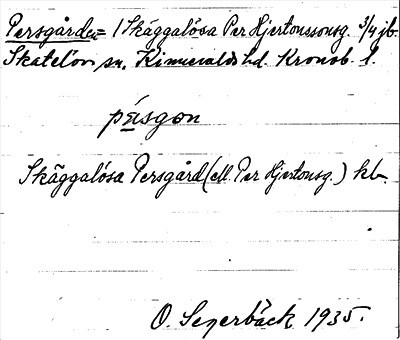 Persgården = 1 Skäggalösa Per Hjertonssonsg. 3/4 jb.
Skatelöv sn. Kinnevalds hd. Kronob. l.
pæsgon
Skäggalösa Persgård (ell. Per Hjertonsg.) kb.
O. Segerbäck 1935.